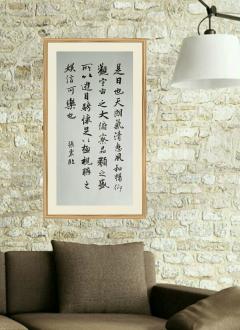 是日也天朗氣清惠風和暢仰
觀宇宙之大俯察品類之盛
所以遊目騁懷足以極視聽之
娛信可樂也